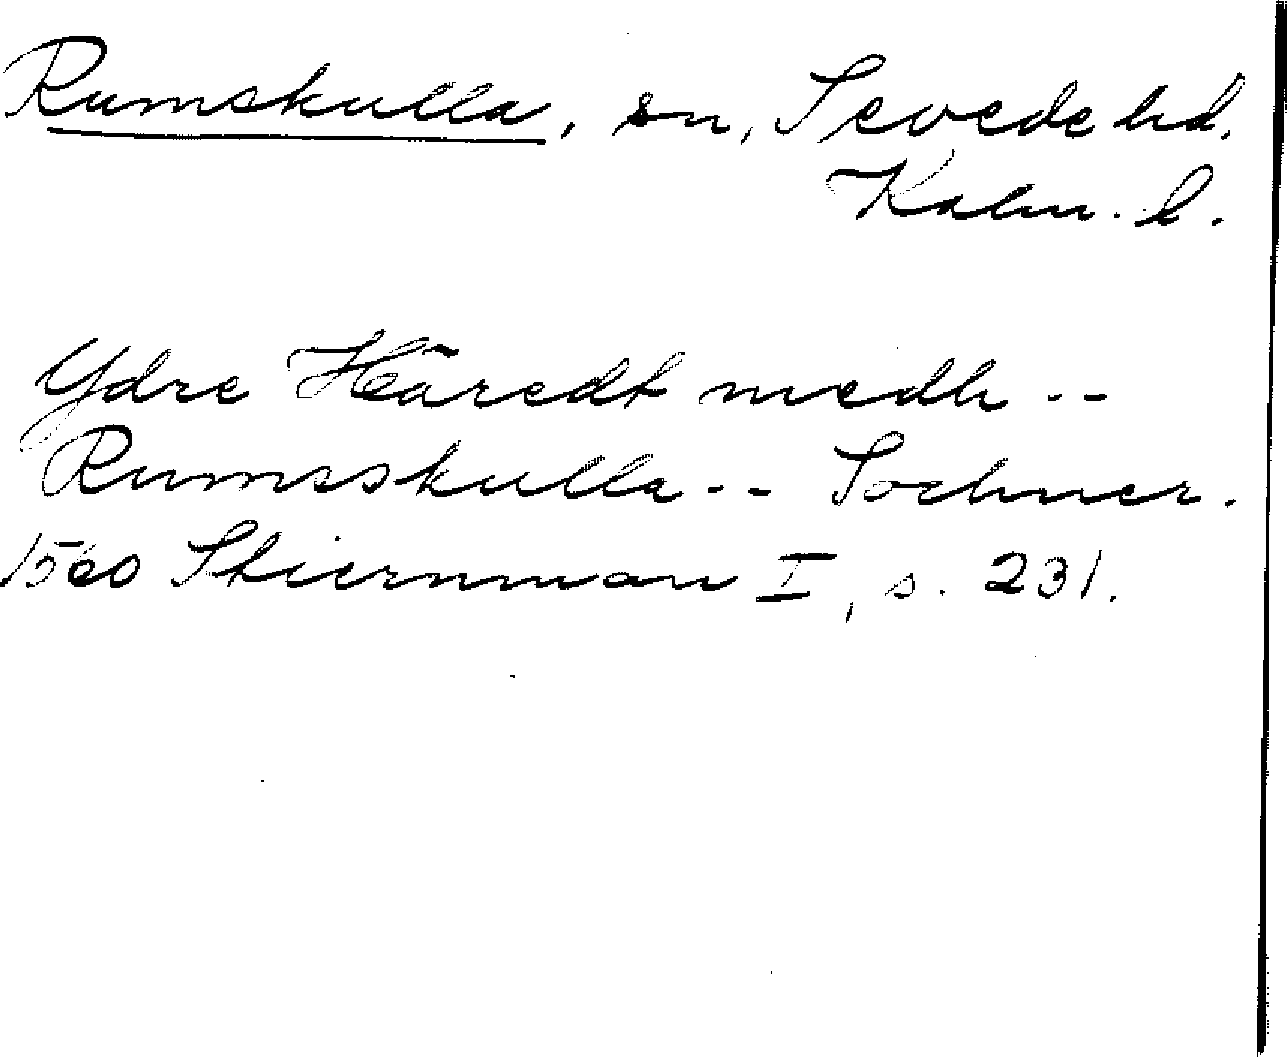 Rumskulla, sn, Sevede hd.
Kalm. l.
Ydre Häredt medh --
Rumsskulla -- Sochner.
1560 Stiernman I, s. 231.